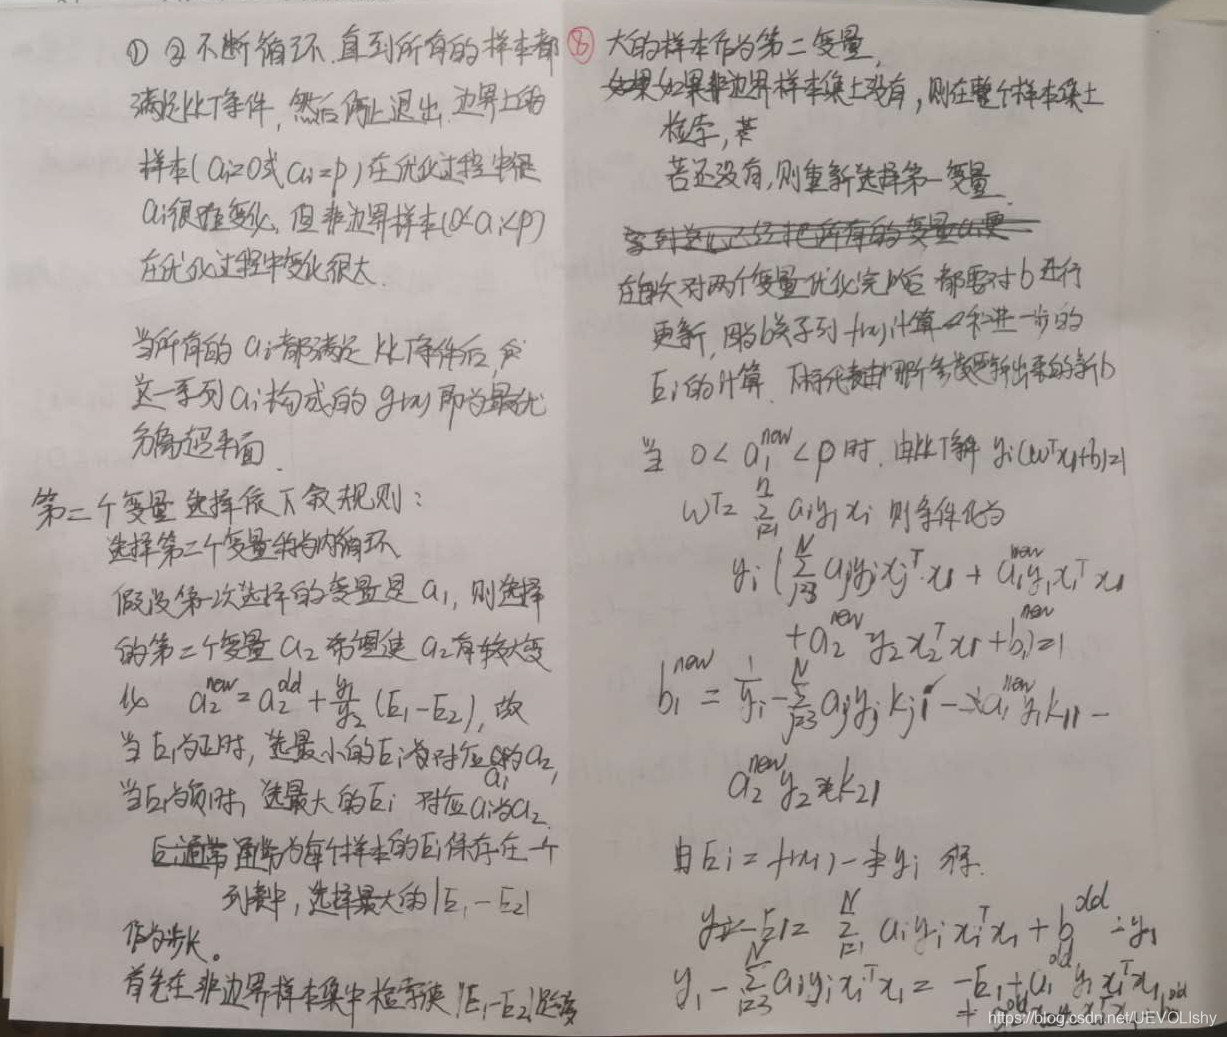 ① ② 不断循环.直到所有的样本都
满足KKT条件,然后停止退出.边界上的
样本(ai=0或ai=p)在优化过程中很
ai很难变化,但非边界样本(0<ai<p)
在优化过程中变化很大.
当所有的ai都满足KKT条件后,
这一系列ai构成的g(x)即为最优
分离超平面.
第二个变量选择依下叙规则:
选择第二个变量称为内循环
假设第一次选择的变量是a1,则选择
的第二个变量a2希望使a2有较大变
化 a2^new = a2^old + y1/y2 (E1-E2),故
当E1为正时,选最小的Ei 对应ai为a2,
当E1为负时,选最大的Ei 对应ai为a2.
通常为每个样本的Ei保存在一个
列表中,选择最大的|E1-E2|
作为步长。
首先在非边界样本集中检索使|E1-E2|足够
⑧ 大的样本作为第二变量,
如果非边界样本集上没有,则在整个样本集上
检索,若
若还没有,则重新选择第一变量.
在每次对两个变量优化完以后 都要对b进行
更新,因为b关系到f(x)计算 和进一步的
Ei的计算.下标代表由哪个参数更新出来的新b
当 0<a1^new<p时.由KKT条件 yi(w^T x1+b)=1
w^T= Σ_{i=1}^n aiyi xi 则条件化为
yi (Σ_{j=3}^N ajyjxj^T·x1 + a1^new y1x1^T x1
+a2^new y2x2^T x1+b1^new)=1
b1^new = 1/yi - Σ_{j=3}^N ajyjkj1 - a1^new y1k11 -
a2^new y2k21
由Ei = f(xi) - yi 得.
E1= Σ_{i=1}^N aiyixi^T x1 + b^old - y1
y1 - Σ_{i=3}^N aiyixi^T x1 = -E1 + a1^old y1x1^T x1
https://blog.csdn.net/UEVOLIshy